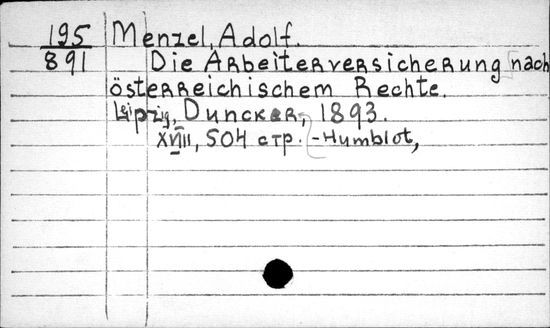 195 Menzel, Adolf.
891 Die Arbeiterversicherung nach
österreichischem Rechte.
Leipzig, Duncker, 1893.
XVIII, 504 стр. -Humblot,